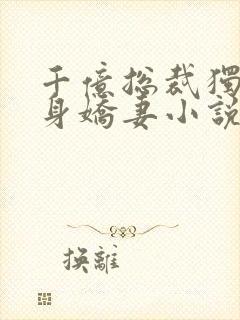 千億總裁獨
身嬌妻小說
換離